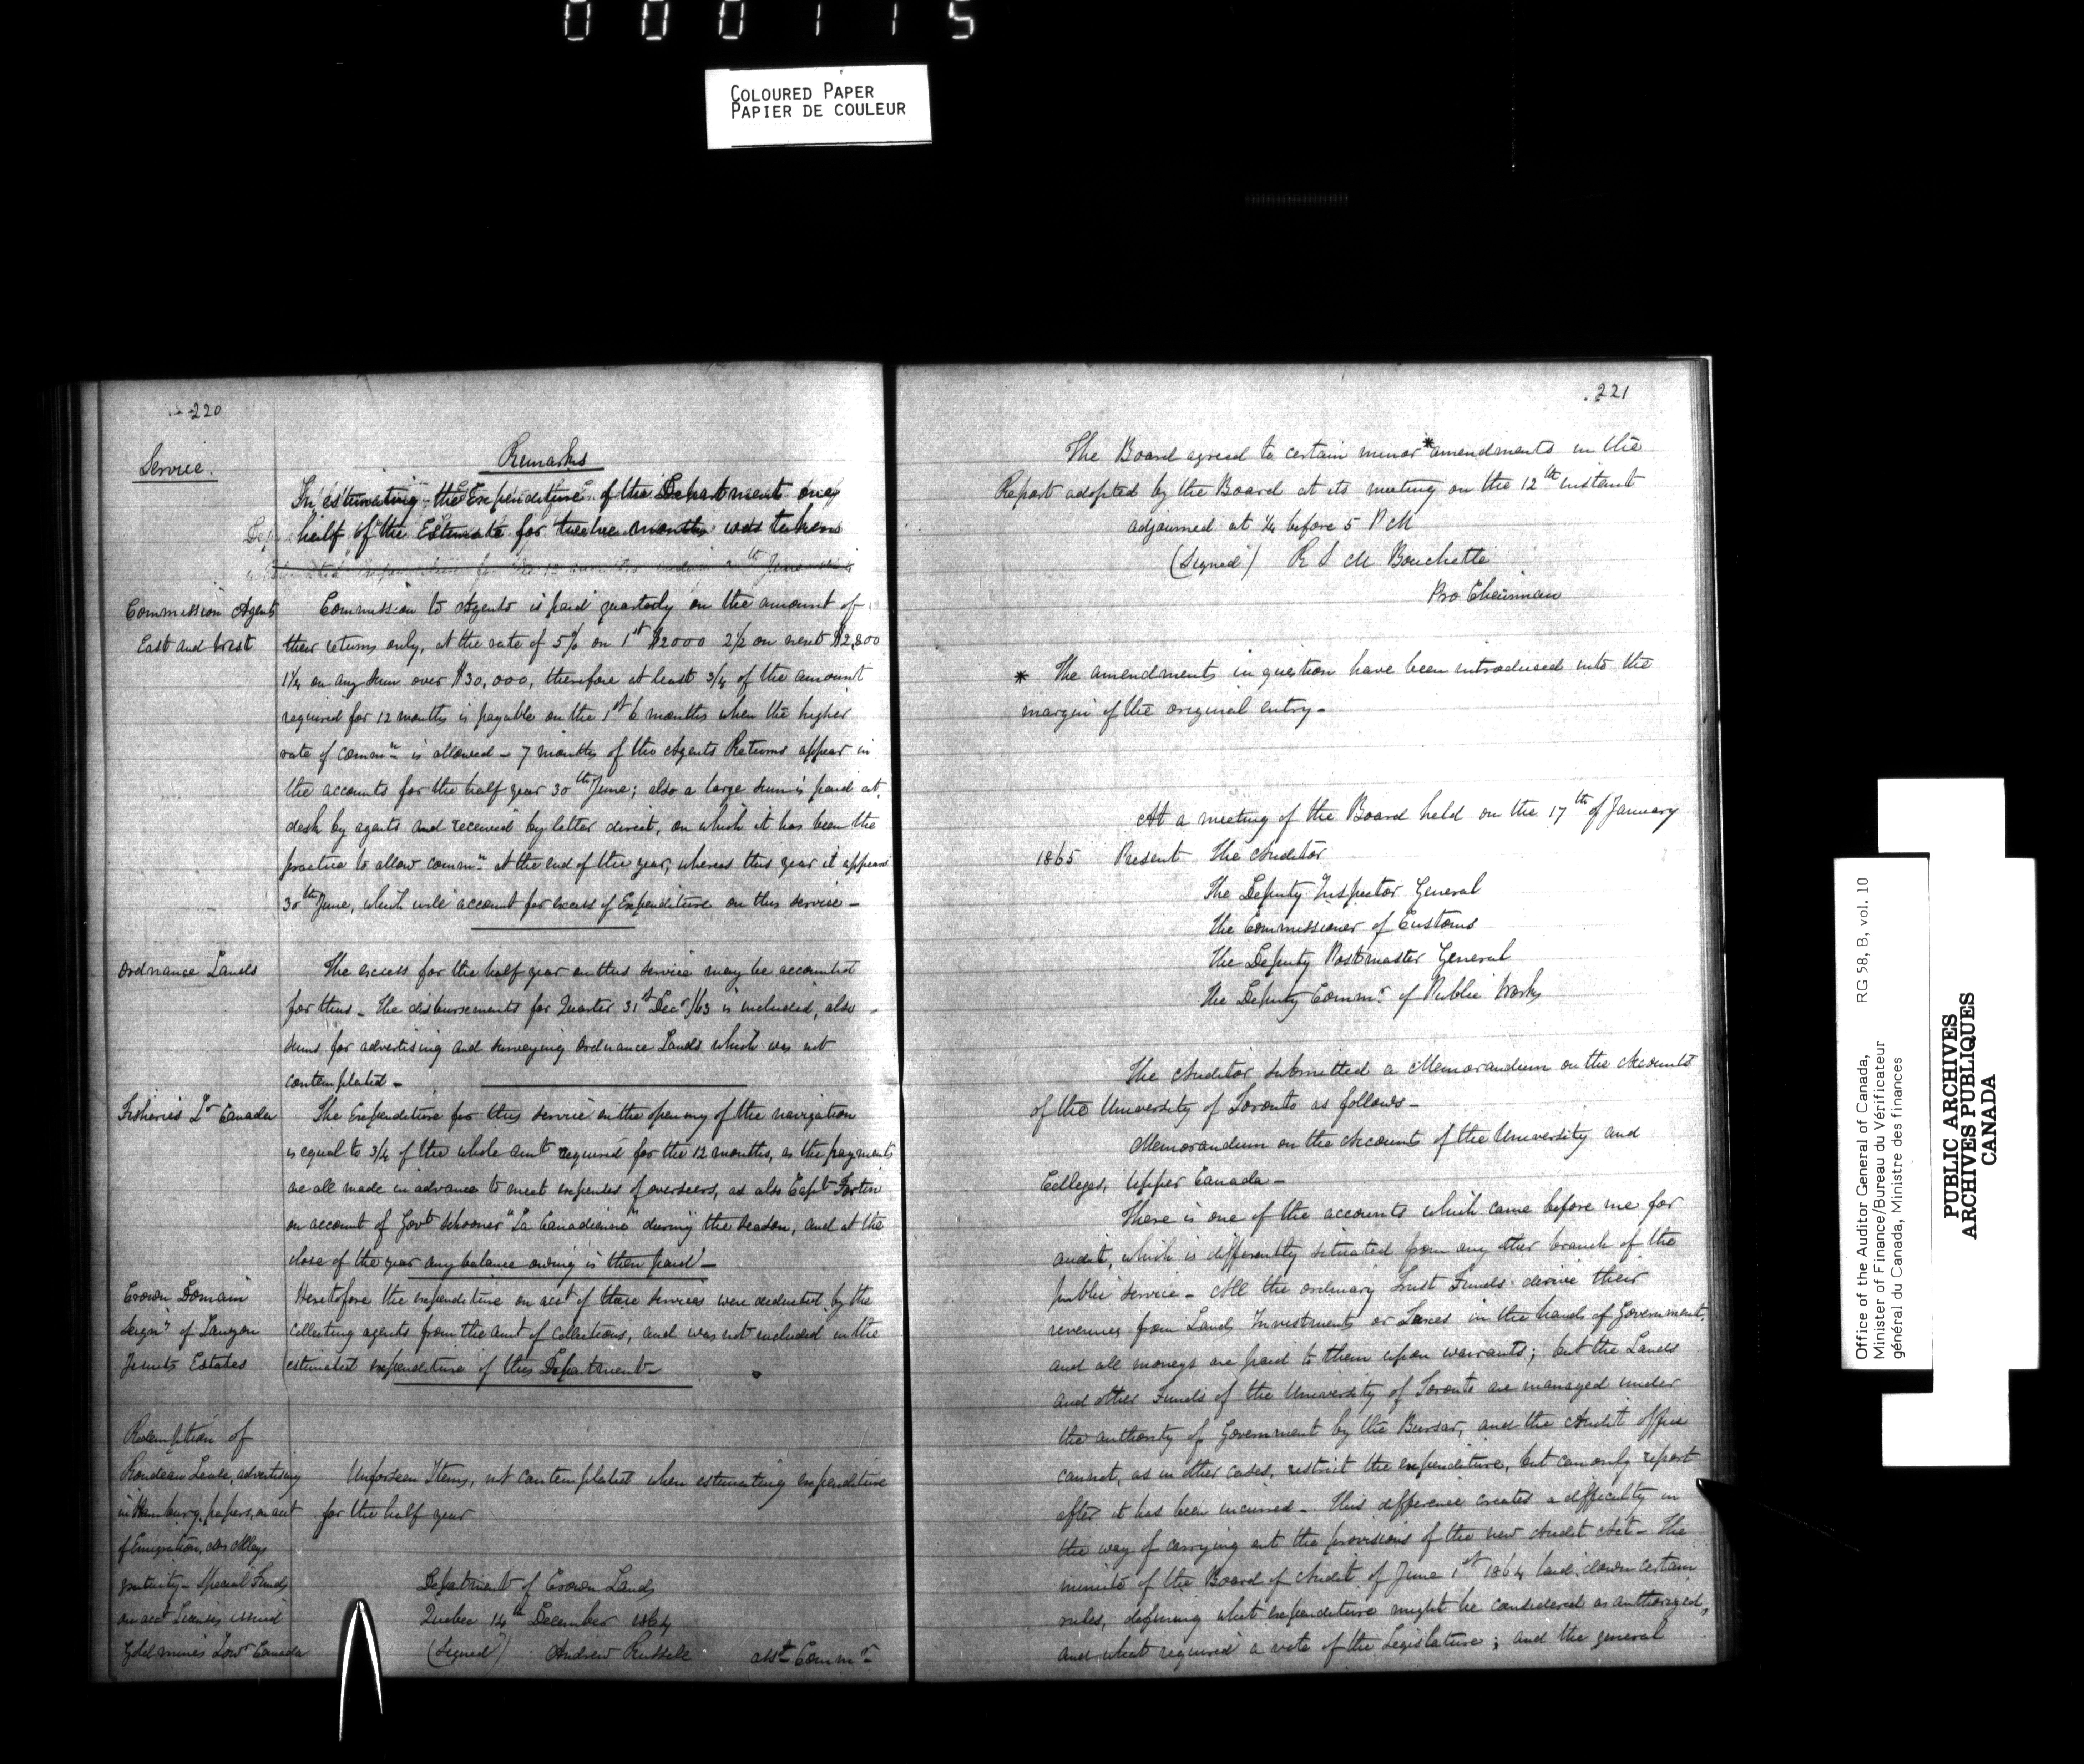 000115
COLOURED PAPER
PAPIER DE COULEUR
220
Service.
Remarks
In estimating the Expenditure of the Department one
half of the Estimate for twelve months was taken
Commission Agents
East and West
Commission to Agents is paid quarterly on the amount of
their returns only, at the rate of 5% on 1st $2000 2½ on next $2,800
1¼ on any sum over $30,000, therefore at least 3/4 of the amount
required for 12 months is payable on the 1st 6 months when the higher
rate of Commn is allowed - 7 months of the Agents Returns appear in
the accounts for the half year 30th June; also a large sum is paid at
desk by agents and received by letter direct, on which it has been the
practice to allow commn at the end of the year, whereas this year it appears
30th June, which will account for excess of Expenditure on this service -
Ordnance Lands
The excess for the half year on this service may be accounted
for thus - The disbursements for Quarter 31st Decr /63 is included, also
sums for advertising and surveying Ordnance Lands which was not
contemplated -
Fisheries Lr Canada
The Expenditure for this service on the opening of the navigation
is equal to 3/4 of the whole amt required for the 12 months, as the payments
are all made in advance to meet expenses of overseers, as also Capt Fortin
on account of Govt Schooner "La Canadienne" during the season, and at the
close of the year any balance owing is then paid -
Crown Domain
Seigny of Lauzon
Jesuits Estates
Heretofore the expenditure on acct of these services were deducted by the
Collecting agents from the amt of Collections, and was not included in the
estimated expenditure of this Department -
Redemption of
Rondeau Lease, advertising
in Hamburg papers, on acct
of Emigration,
gratuity - Special Funds
on acct Licenses issued
Gold mines Lowr Canada
Unforseen Items, not contemplated when estimating expenditure
for the half year
Department of Crown Lands
Quebec 14th December 1864
(Signed) Andrew Russell asst Commr
221
The Board agreed to certain minor * amendments in the
Report adopted by the Board at its meeting on the 12th instant
adjourned at ¼ before 5 P M
(Signed) R S M Bouchette
Pro Chairman
* The amendments in question have been introduced into the
margin of the original entry -
At a meeting of the Board held on the 17th of January
1865 Present The Auditor
The Deputy Inspector General
The Commissioner of Customs
The Deputy Postmaster General
The Deputy Commr of Public Works
The Auditor submitted a Memorandum on the Accounts
of the University of Toronto as follows -
Memorandum on the Accounts of the University and
Colleges, Upper Canada -
There is one of the accounts which came before me for
audit, which is differently situated from any other branch of the
public service - All the ordinary Trust Funds derive their
revenues from Lands Investments or Taxes in the hands of Government,
and all moneys are paid to them upon warrants; but the Lands
and other Funds of the University of Toronto are managed under
the authority of Government by the Bursar, and the Audit office
cannot, as in other cases, restrict the expenditure, but can only report
after it has been incurred - This difference creates a difficulty in
the way of carrying out the provisions of the new Audit Act - The
minute of the Board of Audit of June 1st 1864 laid down certain
rules, defining what expenditure might be considered as authorized,
and what required a vote of the Legislature; and the general
Office of the Auditor General of Canada,
Minister of Finance/Bureau du Vérificateur
général du Canada, Ministre des finances
RG 58, B, vol. 10
PUBLIC ARCHIVES
ARCHIVES PUBLIQUES
CANADA